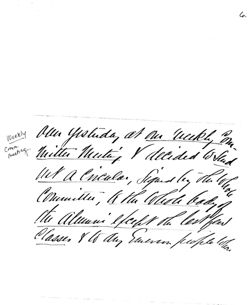 6.
Weekly
Comm
meeting
over yesterday at our weekly Com-
mittee Meeting & decided to send
out a Circular, signed by the whole
Committee, to the whole body of
the Alumni except the last few
Classes & to any Emerson people who